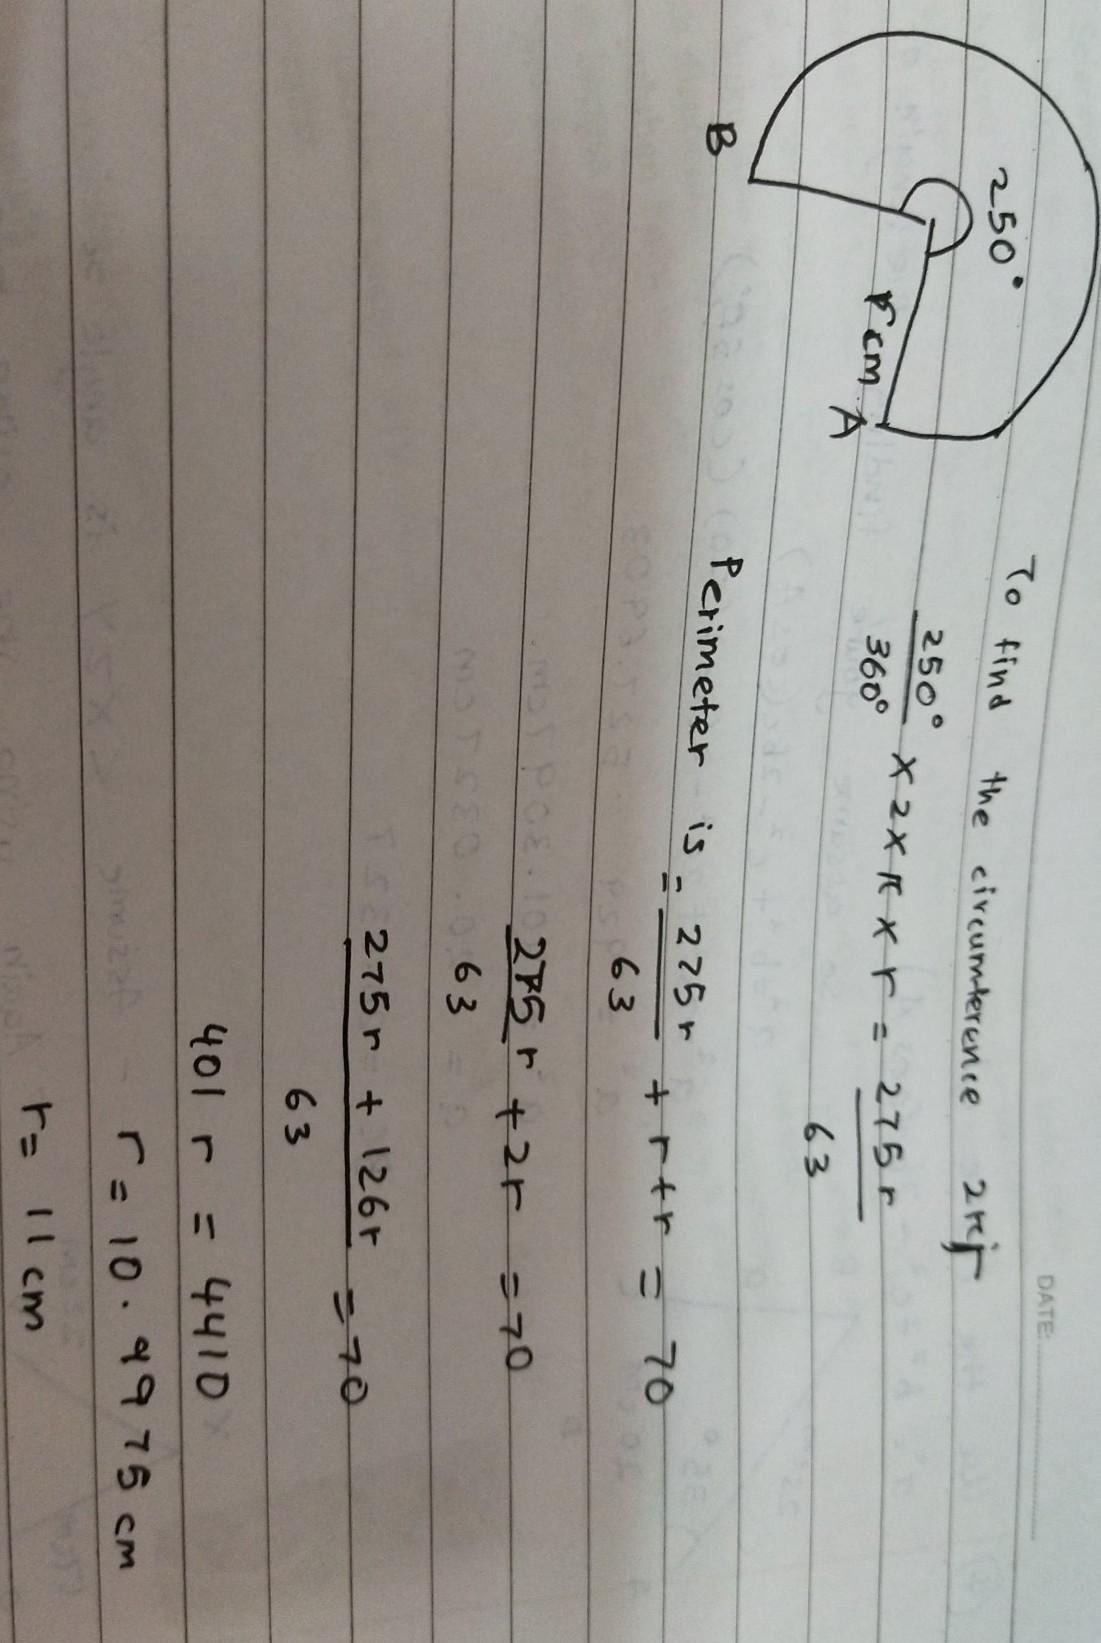 DATE:
250°
r cm
A
B
To find the circumference 2πr
250°/360° × 2 × π × r = 275r/63
Perimeter is = 275r/63 + r + r = 70
275r/63 + 2r = 70
275r + 126r/63 = 70
401 r = 4410
r = 10.9975 cm
r = 11 cm